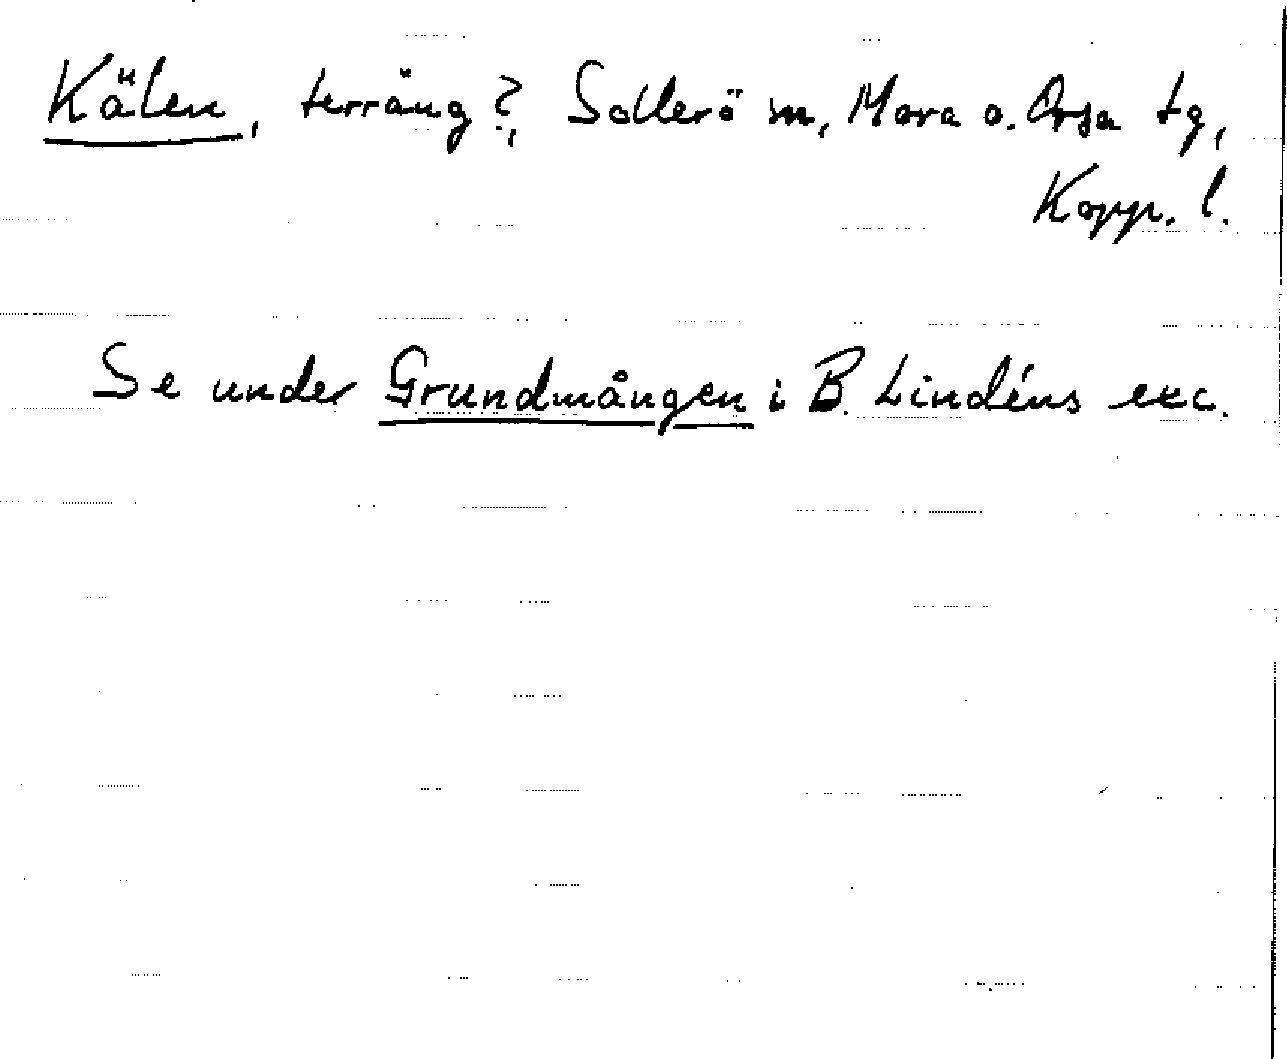 Kälen, terräng?, Sollerö sn, Mora o. Orsa tg,
Kopp. l.
Se under Grundmången i B. Lindéns exc.